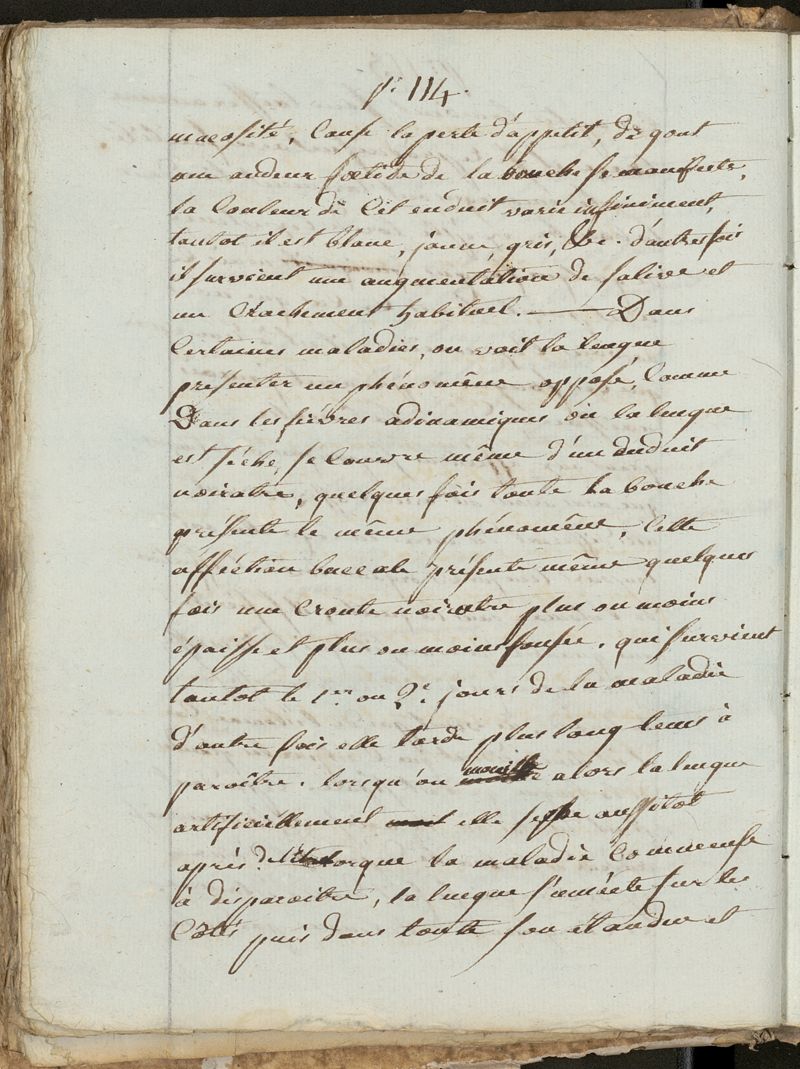 p. 114.
mucosité, Cause la perte d'appetit, de gout
une audeur foetide de la bouche se manifeste,
la Couleur de Cet enduit varie infiniment,
tantot il est blanc, jaune, gris, &c. d'autres fois
il survient une augmentation de salive et
un Crachement habituel. — Dans
Certaines maladies, on voit la langue
presenter un phénomène opposé, Comme
Dans les fièvres adinamiques où la langue
est séche, se Couvre même d'un enduit
noiratre, quelques fois toute la bouche
présente le même phénomène, Cette
afféction buccale présente même quelques
fois une Croute noiratre plus ou moins
épaisse et plus ou moins foncée. qui survient
tantot le 1er ou 2e jours de la maladie
d'autre fois elle tarde plus long tems à
paroître. lorsqu'on mouille alors la langue
artificiellement elle seche aussitot
après. lorque la maladie Commence
à disparoitre, la langue s'umécte sur les
Cotés puis dans toute son étandue et